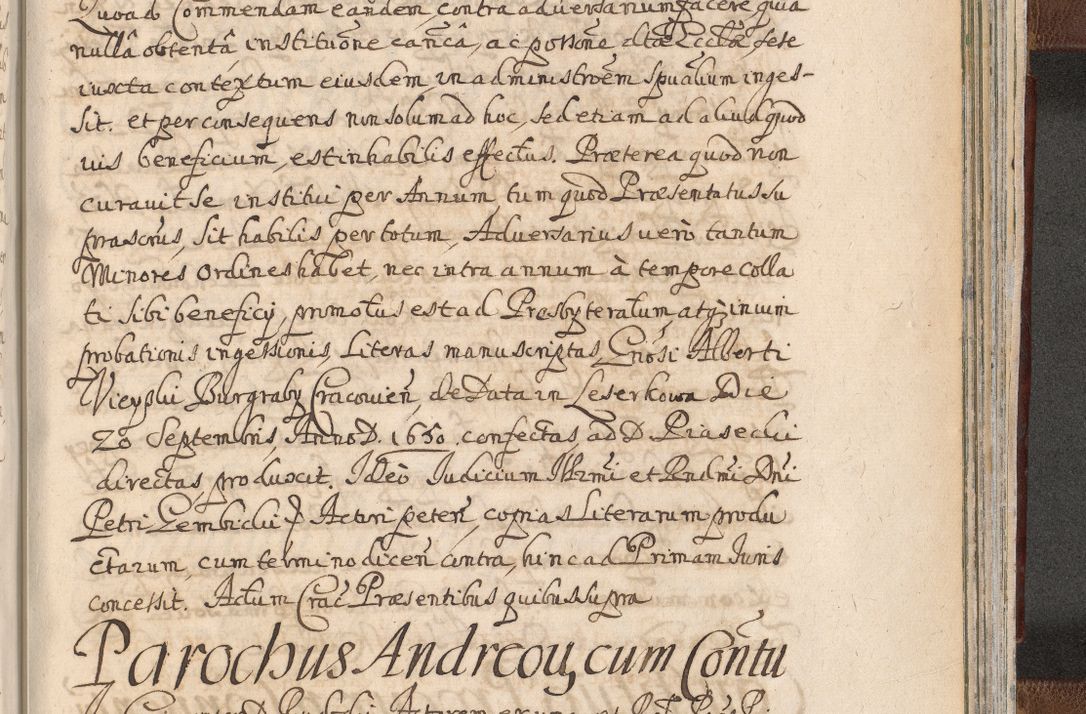 Quoad Commendam eandem, contra adversarium facere quia
nullâ obtentâ institu͠one can͠câ, ac poss͠one dtæ Eccl͠æ sese
iuxta contextum eiusdem, in administro͠em spu͠alium inges-
sit. et per consequens non solum ad hoc, sed etiam ad aliud quod
vis beneficium, est inhabilis effectus. Præterea quod non
curavit se institui per Annum, tum quod Præsentatus su
prascr͠us, sit habilis per totum, Adversarius verò tantum
Minores Ordines habet, nec intra annum à tempore colla
ti sibi beneficij, promotus est ad Præsbyteratum atq; in vim
probationis ingessionis, Literas manuscriptas, Gn͠osi Alberti
Burgraby Cracovien͠, de Data in Leserkowa Die
20 Septembris, Anno D. 1650. confectas ad D. Piasecki
directas, produxit. Ideò Iudicium Ill͠rmi et Rnd͠mi Dn͠i
Petri Gembicki Actori peten͠, copias Literarum produ
ctarum, cum termino dicen͠ contra, hinc ad Primam Iuris
concessit. Actum Crac͠ Præsentibus quibus supra
Parochus Andreoy, cum Contu